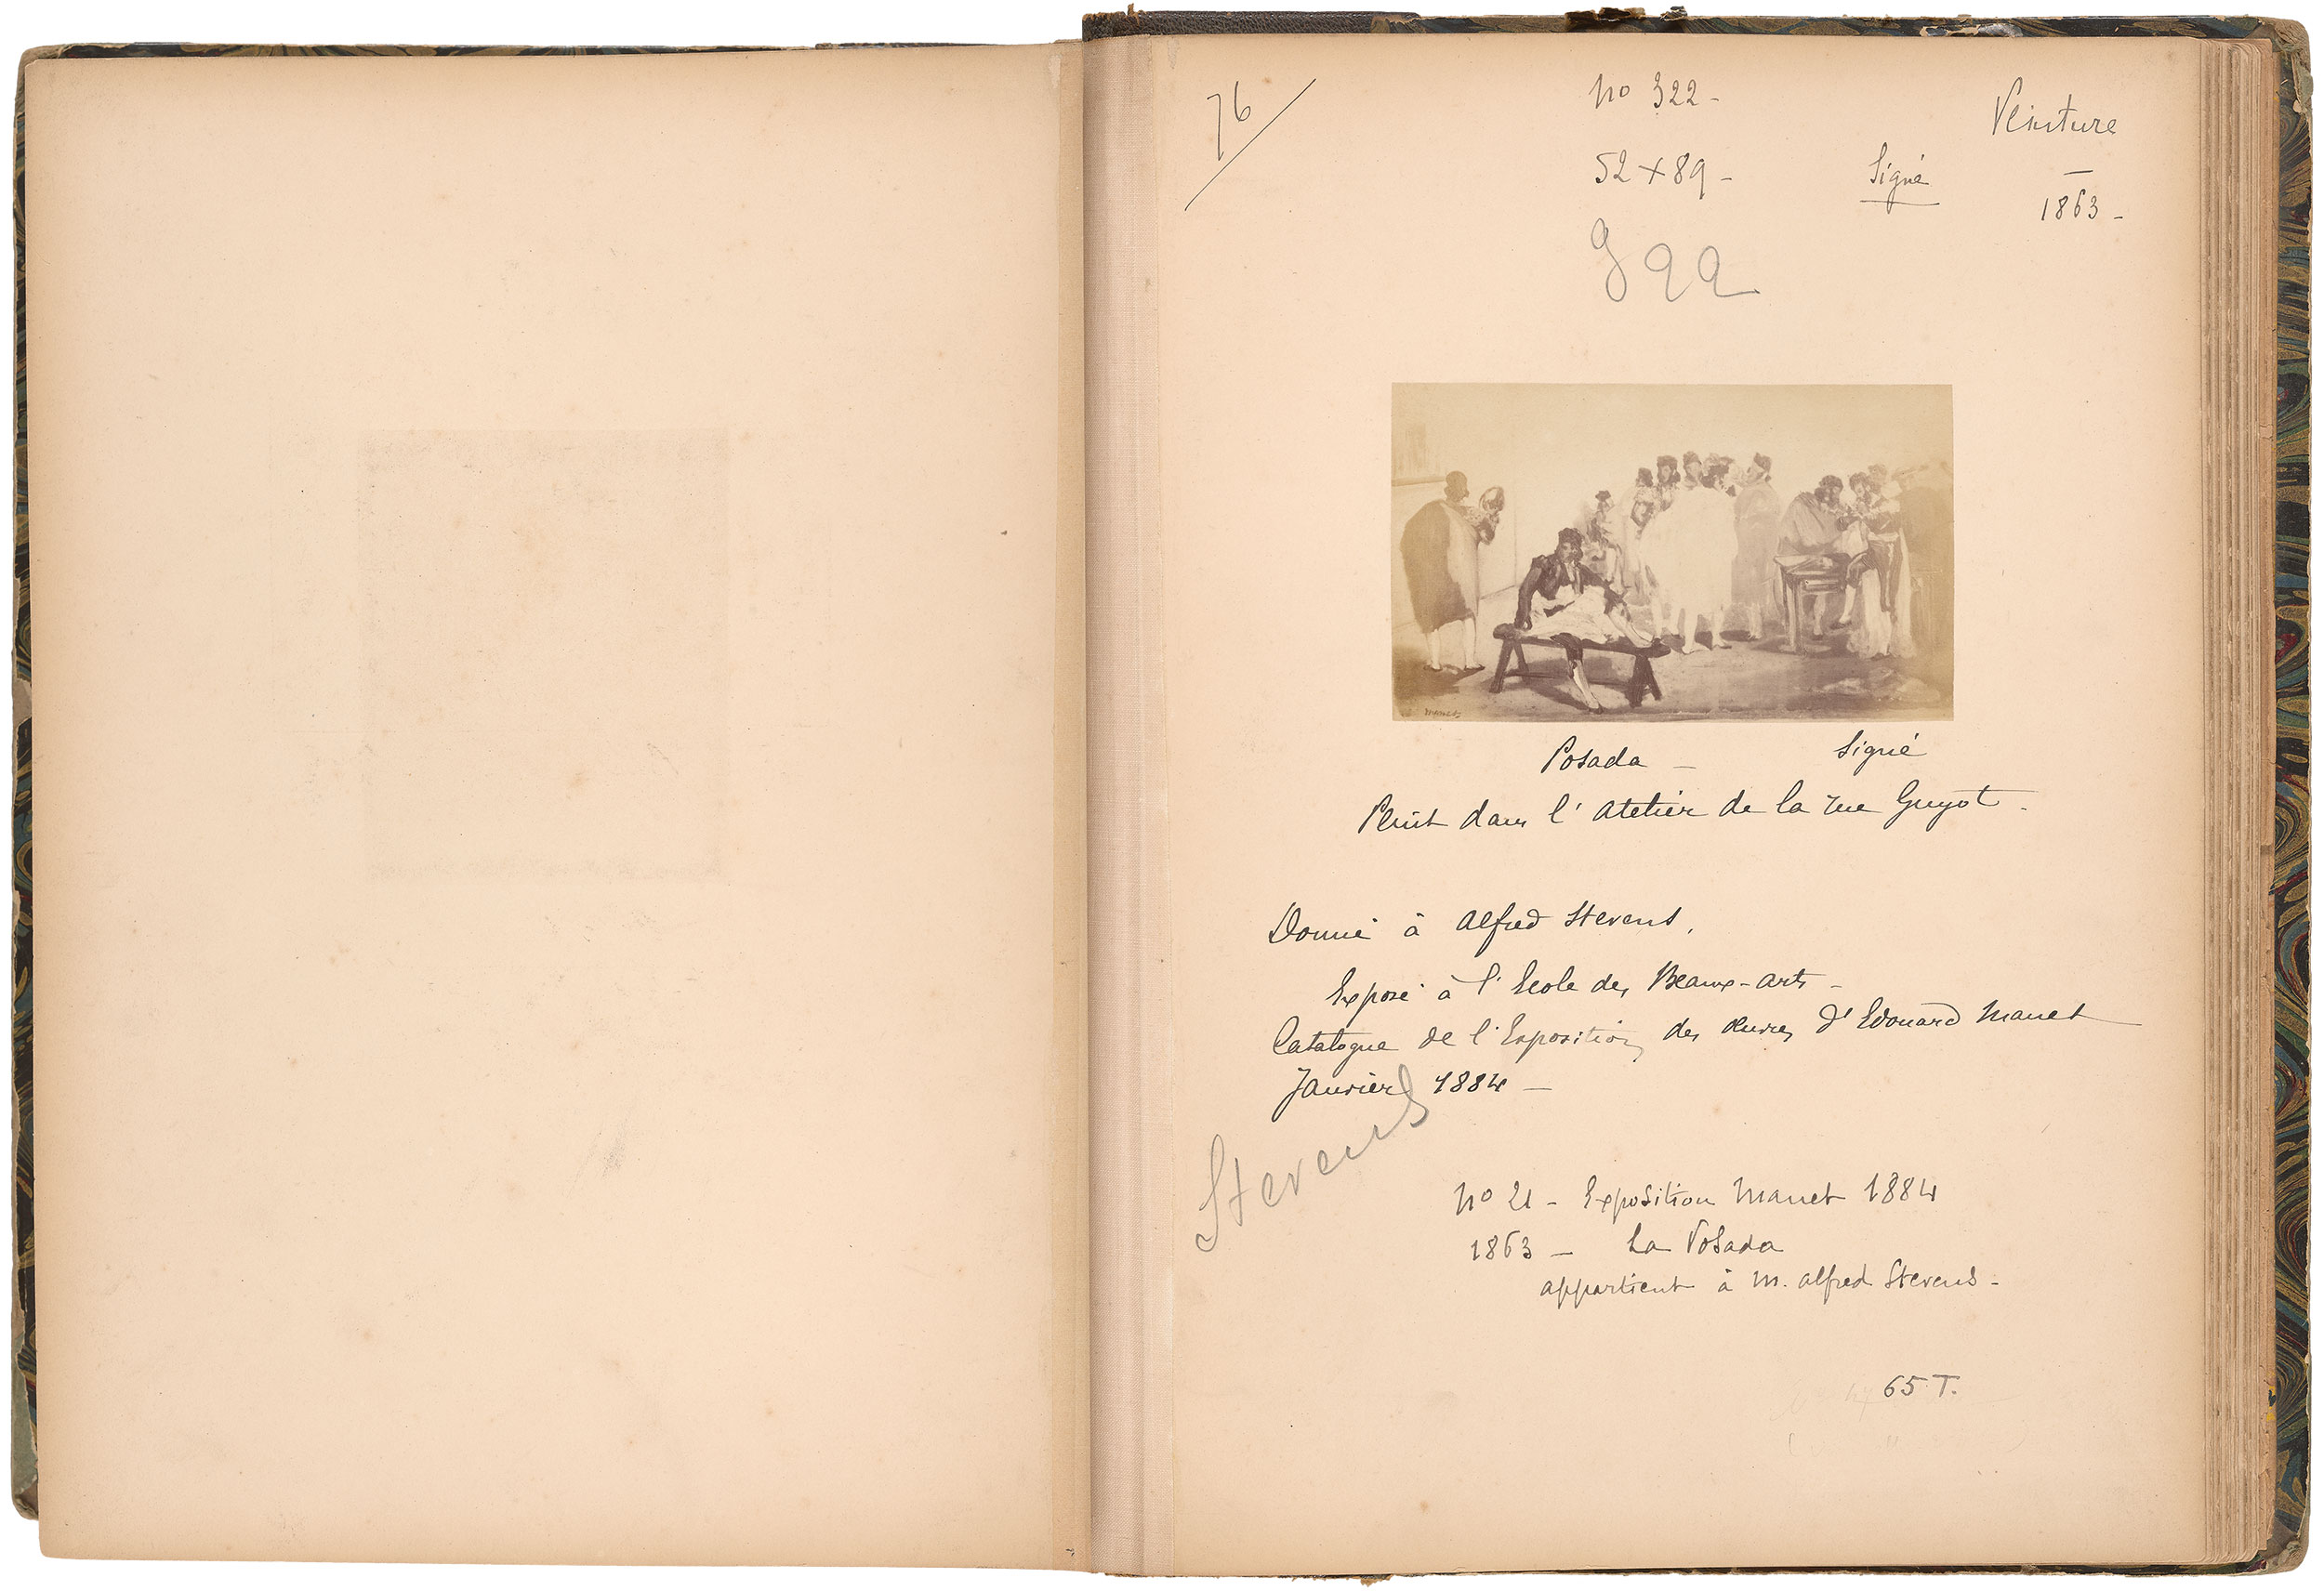 76
no 322 -
Peinture
52 x 89 -
Signé
1863 -
322
Manet
Posada - Signé
Peint dans l'atelier de la rue Guyot -
Donné à Alfred Stevens.
Exposé à l'Ecole des Beaux-Arts -
Catalogue de l'Exposition des Œuvres d'Edouard Manet
Janvier 1884 -
Stevens
no 21 - Exposition Manet 1884
1863 - La Posada
appartient à M. Alfred Stevens -
65 T.